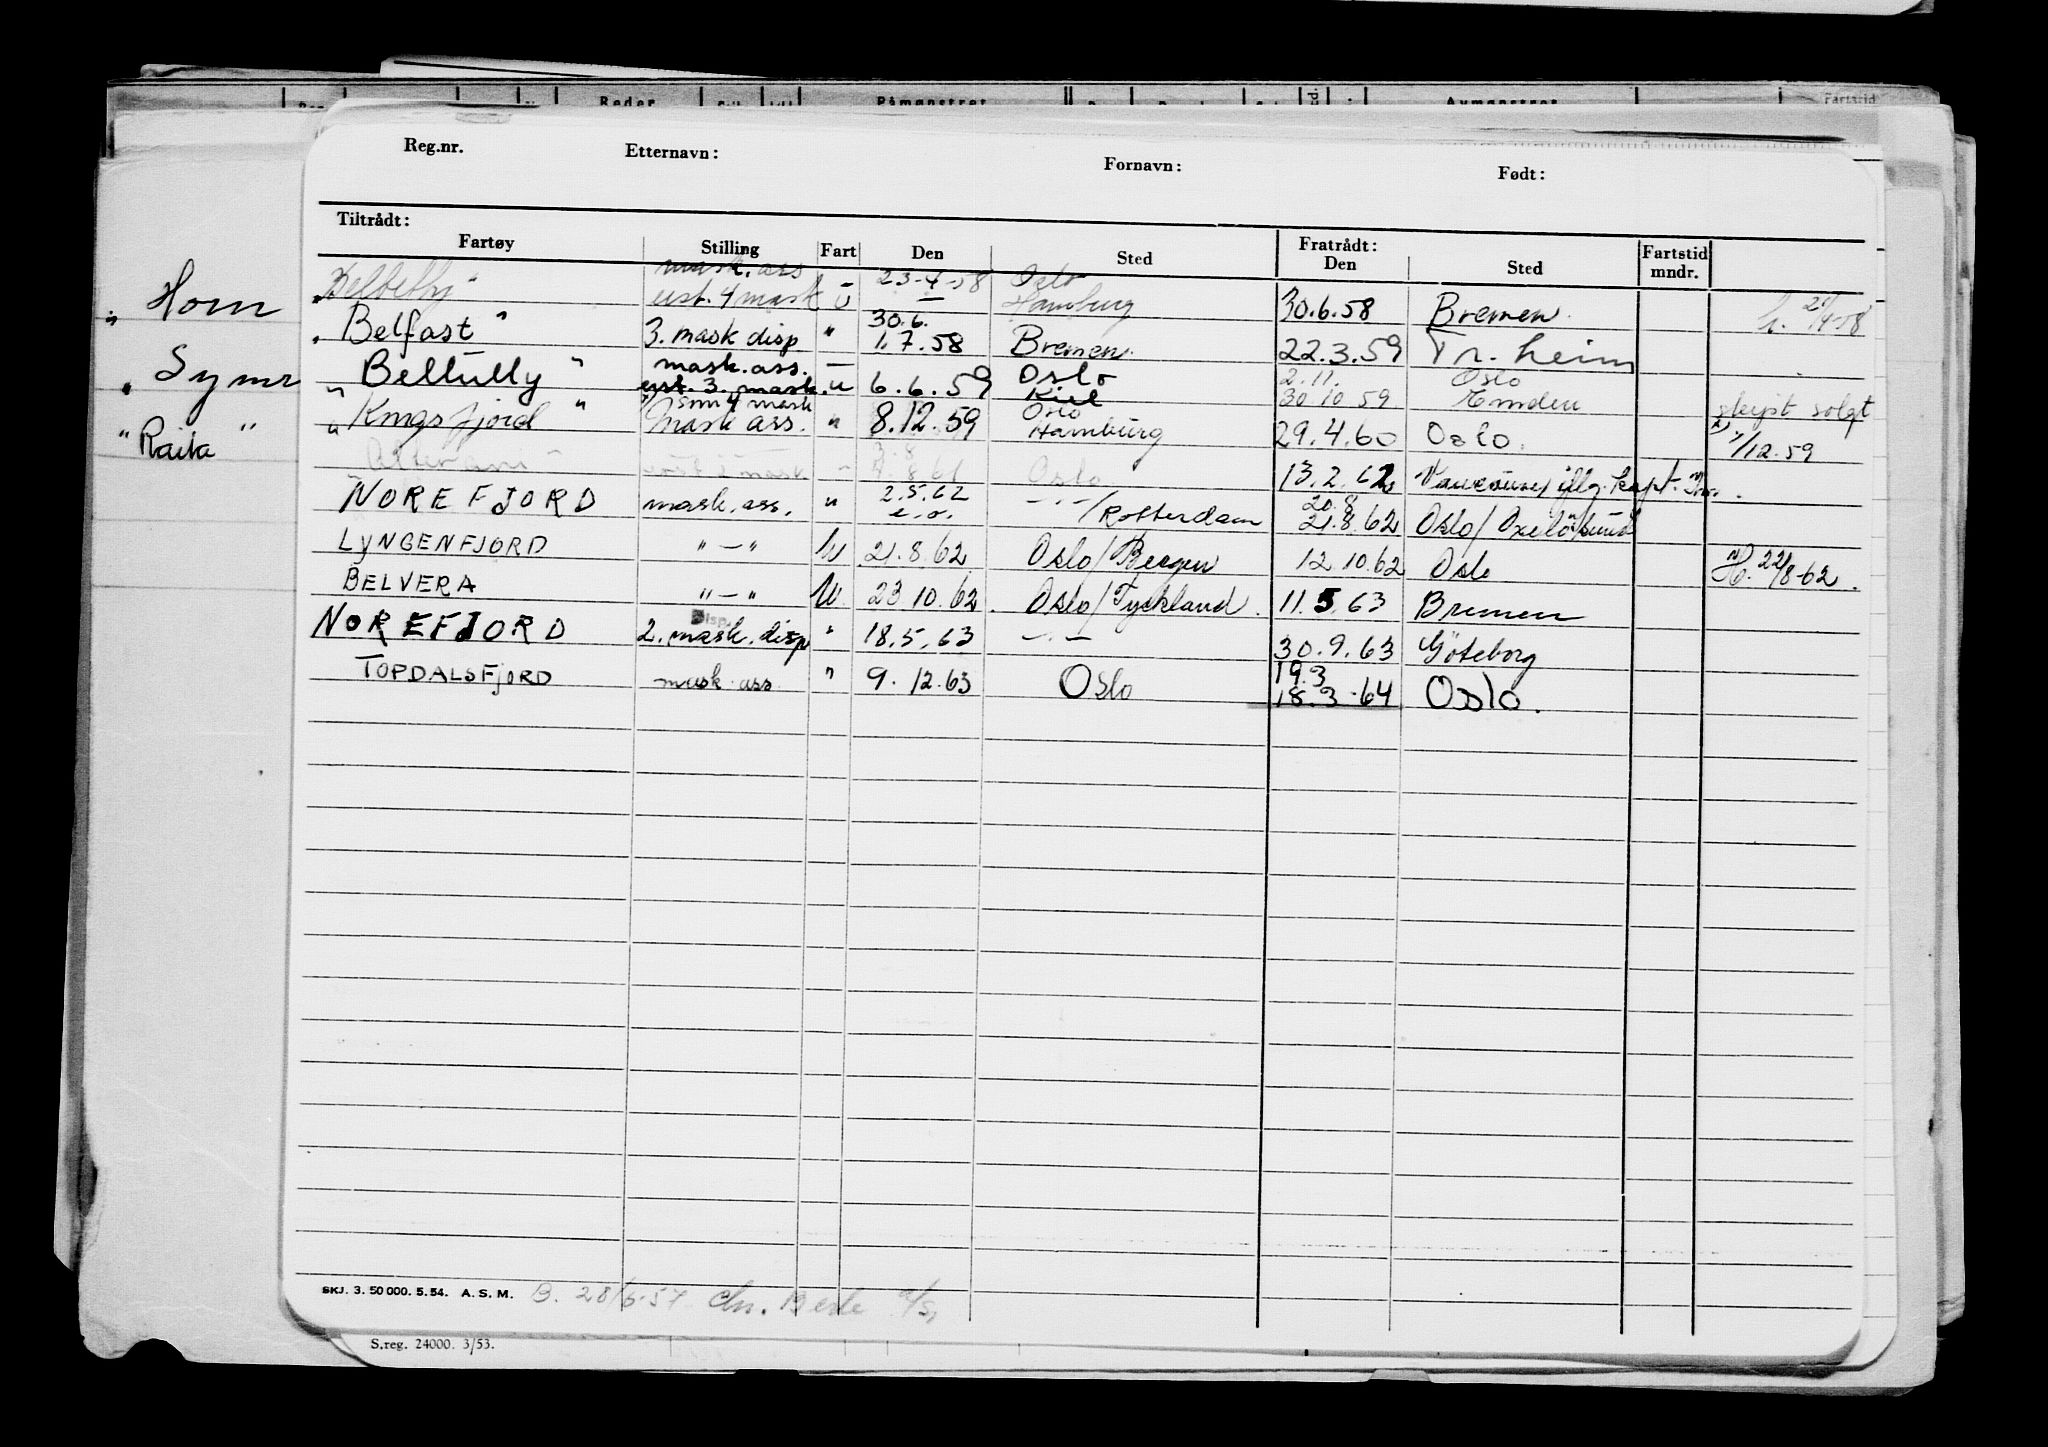 Reder Påmønstret Avmønstret Fartstid
Reg.nr. Etternavn: Fornavn: Født:
Tiltrådt: Fratrådt:
Fartøy Stilling Fart Den Sted Den Sted Fartstid mndr.
mask. ass 23-4-58 Oslo
erst. 4 mask u Hamburg 30.6.58 Bremen. h. 21/4-58
" Horn
30.6.
" Belfast " 3. mask disp " 1.7.58 Bremen. 22.3.59 Tr. heim
mask. ass. Oslo 2.11. Oslo
" Symr
" Beltully " erst. 3. mask. u 6.6.59 Kiel 30 10 59 Emden skipet solgt
som 4 mask Oslo
" Kongsfjord " Mask ass. " 8.12.59 Hamburg 29.4.60 Oslo. 7/12.59
" Raila "
3.8
erst 2 mask. " 4.8.61 Oslo 13.2.62 Vancouver
2.5.62 20.8
NOREFJORD mask. ass. " e.o. -"-/Rotterdam 21.8.62 Oslo/Oxelösund
LYNGENFJORD "-" U 21.8.62 Oslo/Bergen 12.10.62 Oslo H. 22/8-62.
BELVERA "-" U. 23 10.62. Oslo/Tyskland. 11.5.63 Bremen
Disp.
NOREFJORD 2. mask. disp " 18.5.63 -"- 30.9.63 Göteborg
19.3
TOPDALSFJORD mask. ass. " 9.12.63 Oslo 18.3-64 Oslo.
SKJ. 3. 50 000. 5. 54. A. S. M. B. 28/6-57 Chr. A/S,
S.reg. 24000. 3/53.